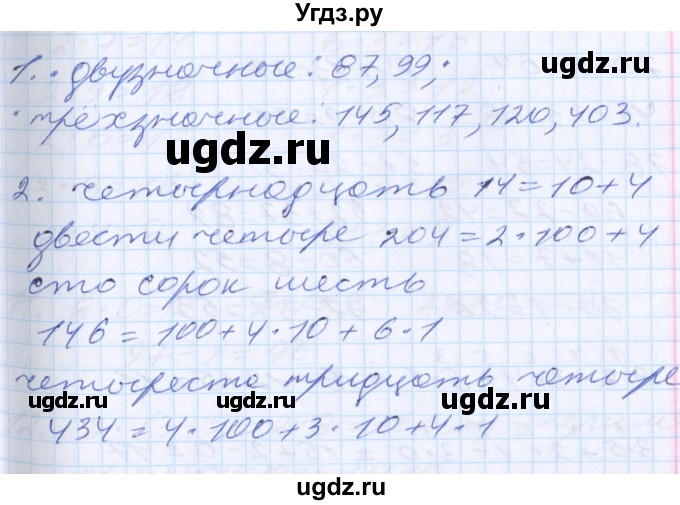 Угдз.ру
1. • двузначные: 87, 99;
ugdz.ru
• трёхзначные: 145, 117, 120, 403.
ugdz.ru
2. четырнадцать 14=10+4
ugdz.ru
двести четыре 204=2•100+4
сто сорок шесть
ugdz.ru
146=100+4•10+6•1
четыреста тридцать четыре
ugdz.ru ugdz.ru
434=4•100+3•10+4•1
ugdz.ru
ugdz.ru